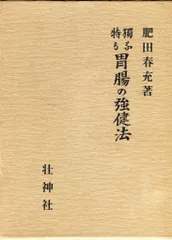 肥田春充著
獨特な る胃腸の強健法
壮神社